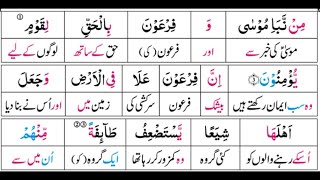 مِنْ نَّبَاِ مُوْسٰى وَ فِرْعَوْنَ بِالْحَقِّ لِقَوْمٍ ①
موسیٰؑ کی خبر سے اور فرعون (کی) حق کے ساتھ لوگوں کے لیے
يُّؤْمِنُوْنَ ③ اِنَّ فِرْعَوْنَ عَلَا فِي الْاَرْضِ وَ جَعَلَ
وہ سب ایمان رکھتے ہیں بیشک فرعون نے سرکشی کی زمین میں اور اُس نے بنا دیا
اَهْلَهَا شِيَعًا يَّسْتَضْعِفُ طَآىِٕفَةً ②③ مِّنْهُمْ
اُسکے رہنے والوں کو کئی گروہ وہ کمزور کر رہا تھا ایک گروہ (کو) اُن میں سے